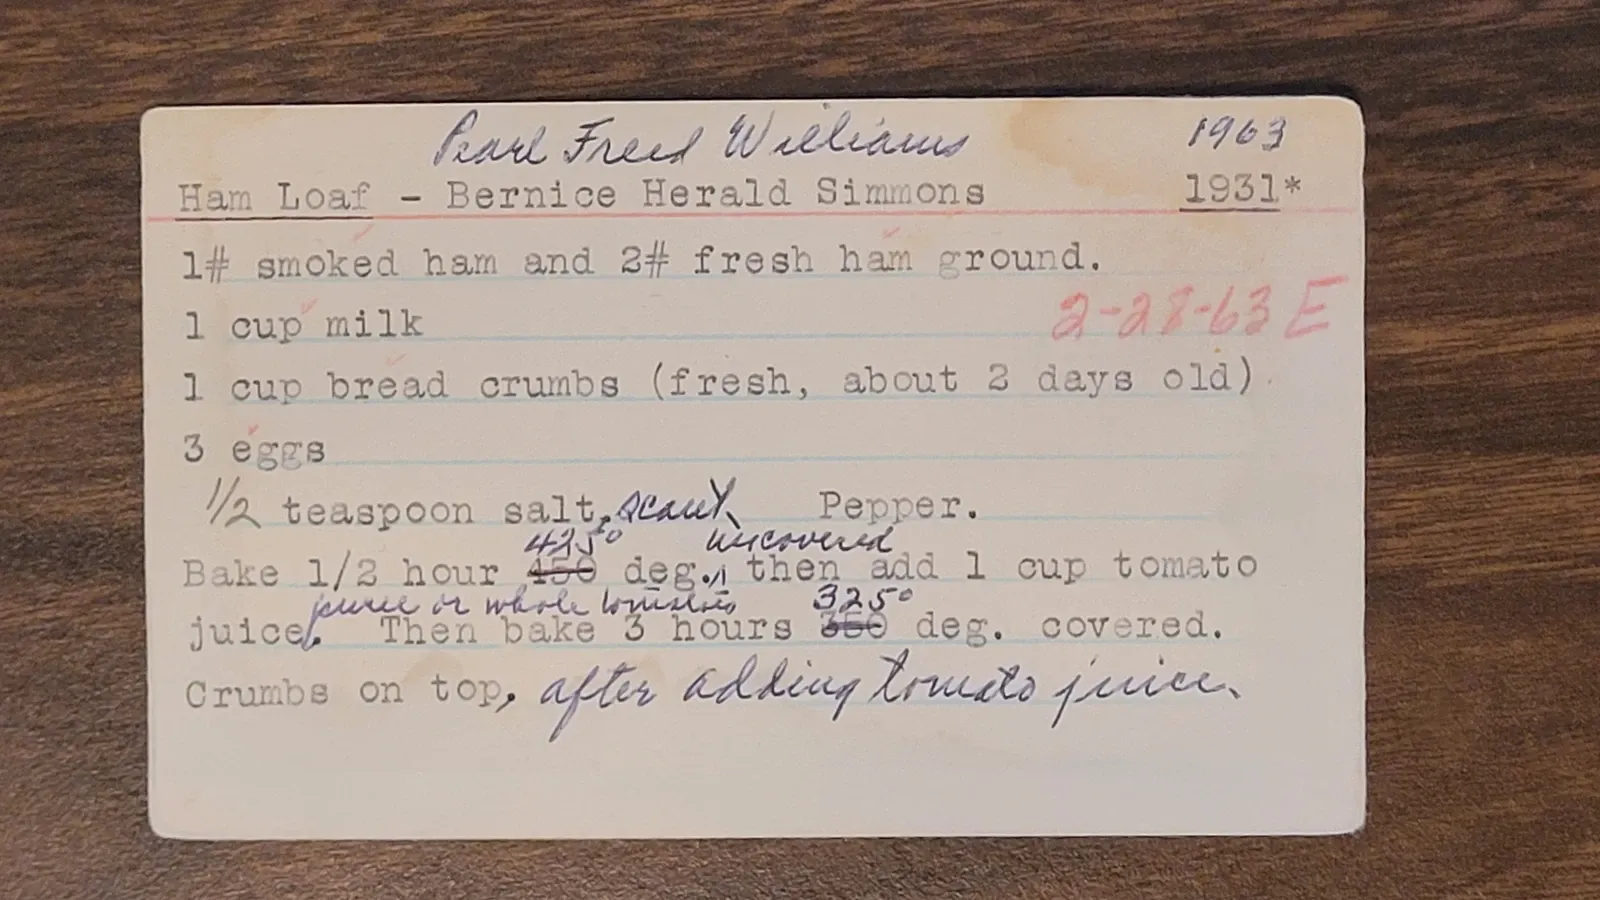 Pearl Freed Williams 1963
Ham Loaf - Bernice Herald Simmons 1931*
1# smoked ham and 2# fresh ham ground.
2-28-63 E
1 cup milk
1 cup bread crumbs (fresh, about 2 days old)
3 eggs
1/2 teaspoon salt, scant. Pepper.
425° uncovered
Bake 1/2 hour 450 deg., then add 1 cup tomato
puree or whole tomatoes 325°
juice. Then bake 3 hours 350 deg. covered.
Crumbs on top, after adding tomato juice.